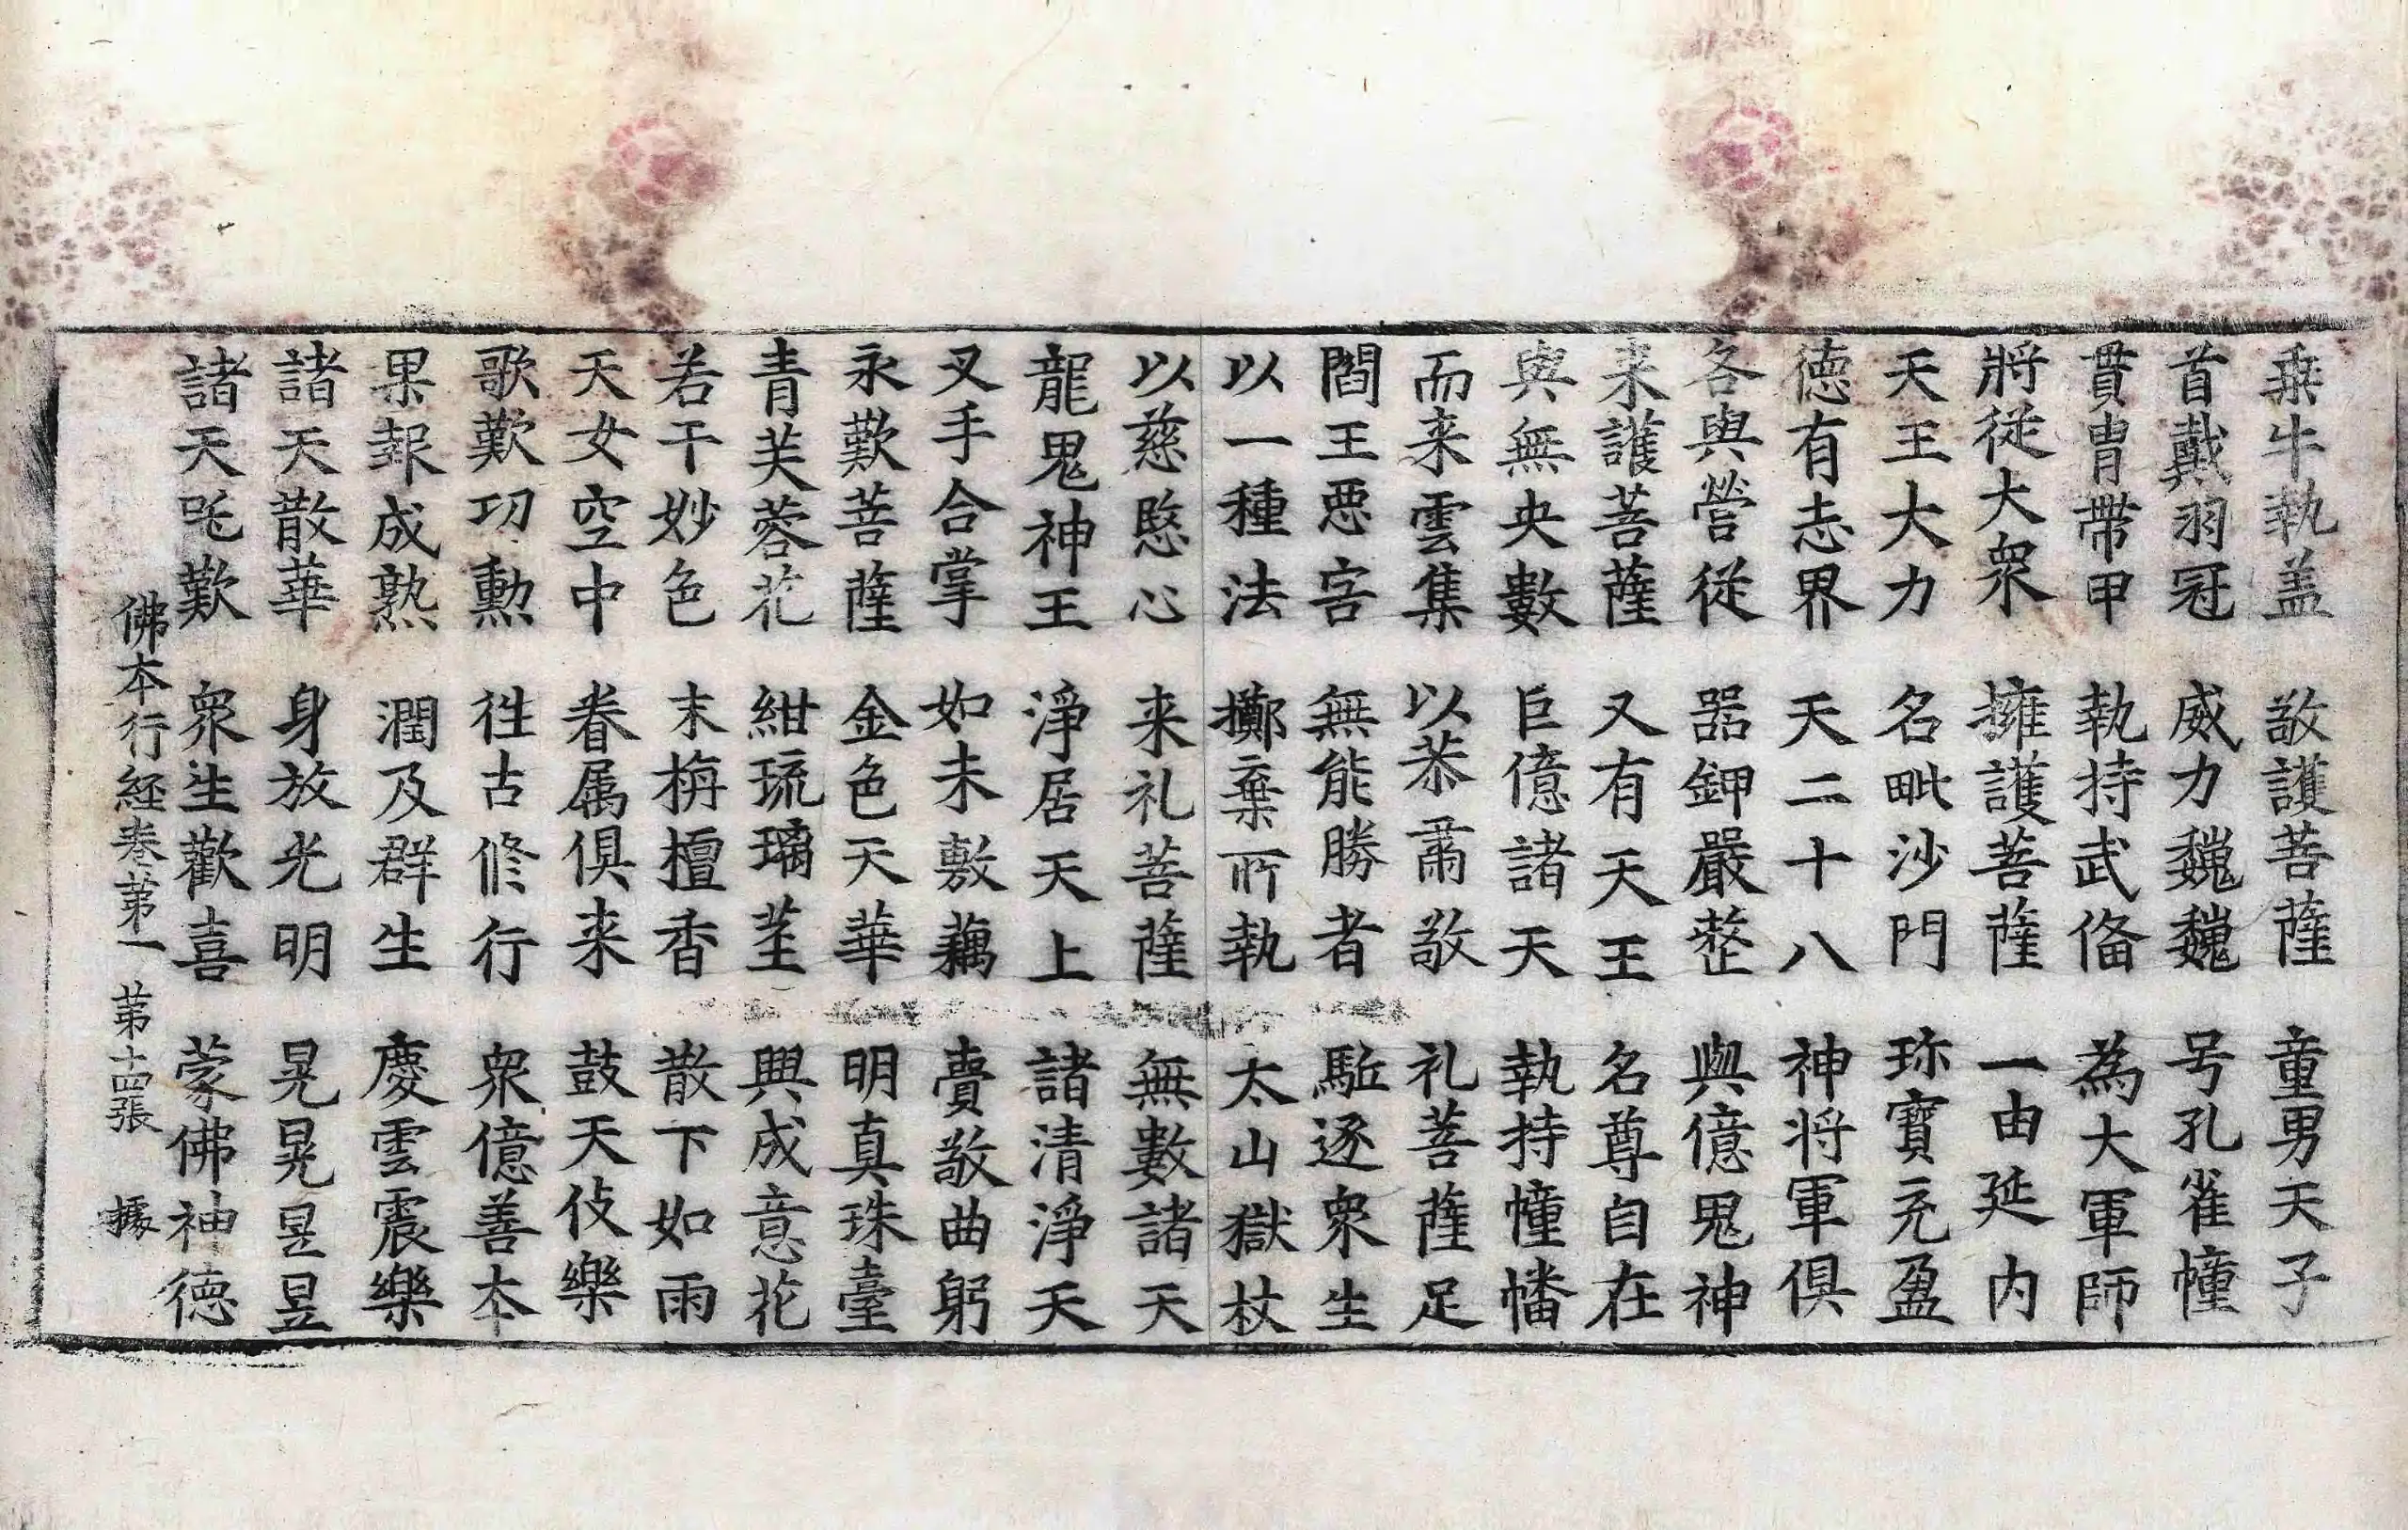 乗牛執盖 敬護菩薩 童男天子
首戴羽冠 威力巍巍 号孔雀幢
貫胄帶甲 執持武俻 為大軍師
將従大衆 擁護菩薩 一由延内
天王大力 名毗沙門 珎寳充盈
徳有志界 天二十八 神将軍俱
各與營従 器鉀嚴整 與億鬼神
来護菩薩 又有天王 名尊自在
與無央數 巨億諸天 執持幢幡
而来雲集 以恭肅敬 礼菩薩足
閻王惡害 無能勝者 駈逐衆生
以一種法 擲棄所執 太山獄杖
以慈愍心 来礼菩薩 無數諸天
龍鬼神王 淨居天上 諸清淨天
叉手合掌 如未敷藕 賣敬曲躬
永歎菩薩 金色天華 明真珠臺
青芙蓉花 紺琉璃莖 興成意花
若干妙色 末栴檀香 散下如雨
天女空中 眷属俱来 鼓天伎樂
歌歎功勲 徃古修行 衆億善本
果報成熟 潤及群生 慶雲震樂
諸天散華 身放光明 晃晃昱昱
諸天咤歎 衆生歡喜 蒙佛神徳
佛本行經卷第一 第十四張 據